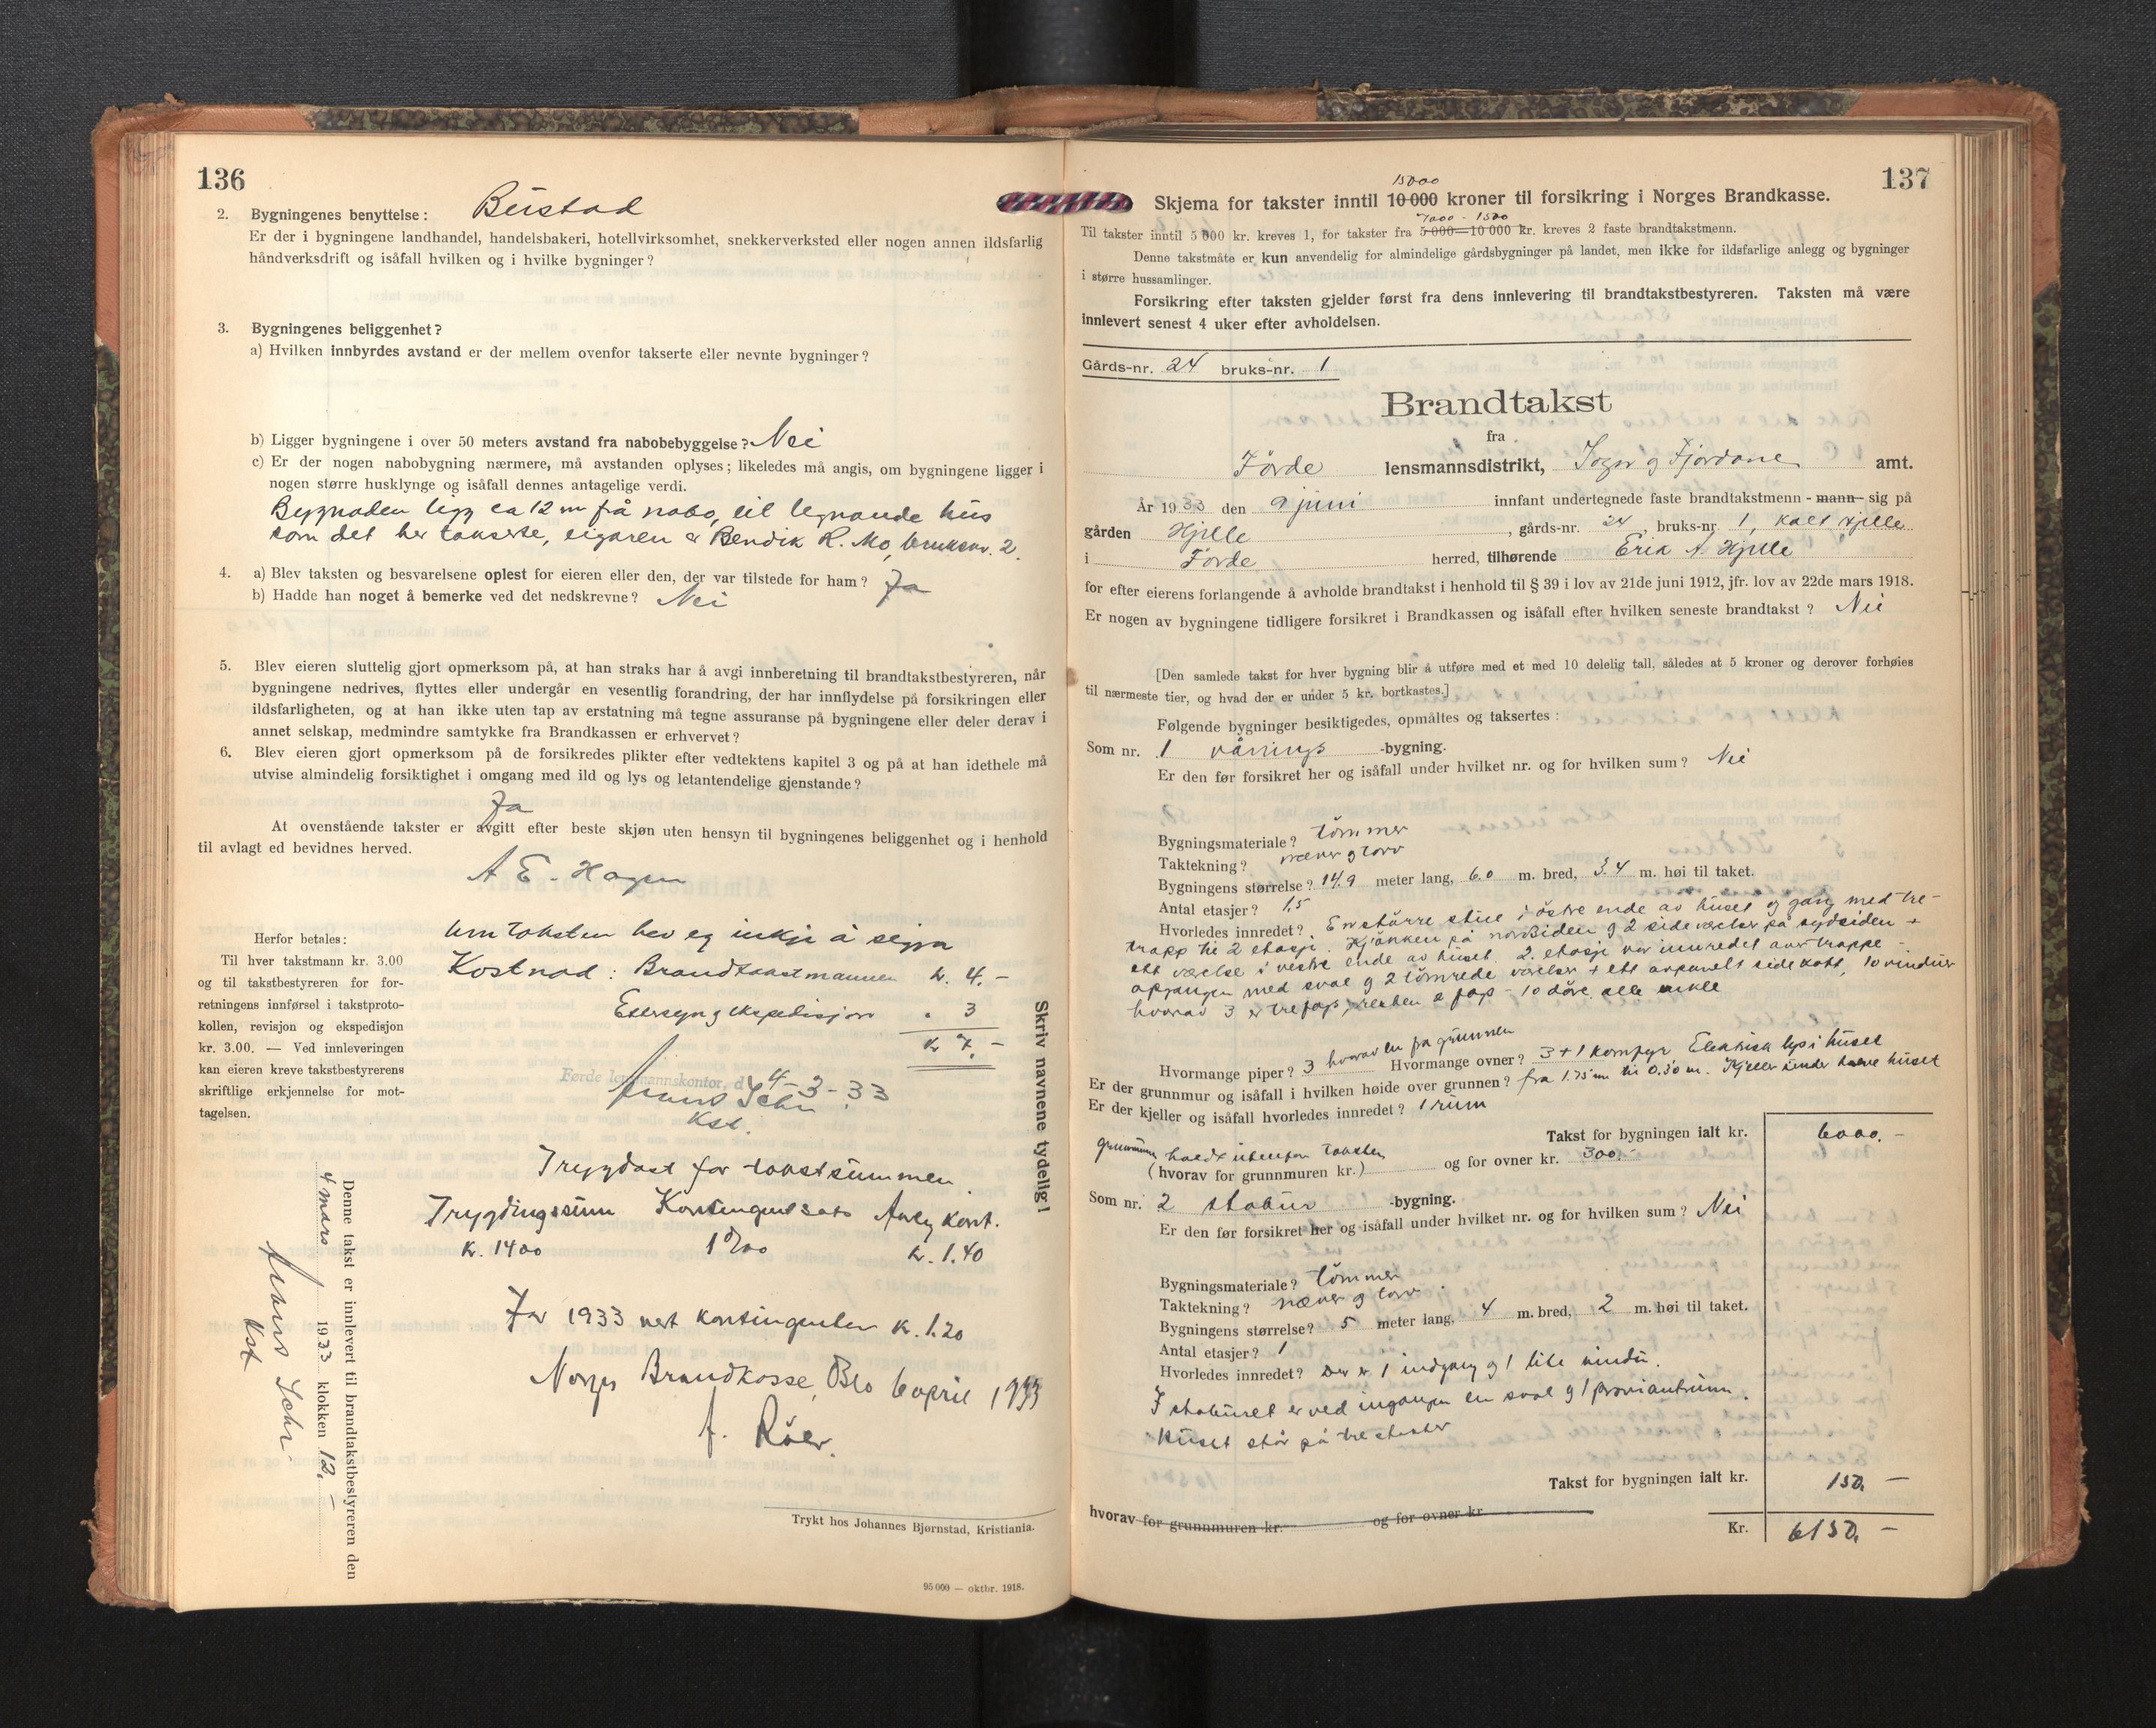 136
2. Bygningenes benyttelse: Bustad
Er der i bygningene landhandel, handelsbakeri, hotellvirksomhet, snekkerverksted eller nogen annen ildsfarlig
håndverksdrift og isåfall hvilken og i hvilke bygninger?
3. Bygningenes beliggenhet?
a) Hvilken innbyrdes avstand er der mellem ovenfor takserte eller nevnte bygninger?
b) Ligger bygningene i over 50 meters avstand fra nabobebyggelse? Nei
c) Er der nogen nabobygning nærmere, må avstanden oplyses; likeledes må angis, om bygningene ligger i
nogen større husklynge og isåfall dennes antagelige verdi.
Bygnaden ligg ca 12 m frå nabo, eit lignande hus
som det her takserte, eigaren er Bendik R. Mo, bruksnr. 2.
4. a) Blev taksten og besvarelsene oplest for eieren eller den, der var tilstede for ham? Ja
b) Hadde han noget å bemerke ved det nedskrevne? Nei
5. Blev eieren sluttelig gjort opmerksom på, at han straks har å avgi innberetning til brandtakstbestyreren, når
bygningene nedrives, flyttes eller undergår en vesentlig forandring, der har innflydelse på forsikringen eller
ildsfarligheten, og at han ikke uten tap av erstatning må tegne assuranse på bygningene eller deler derav i
annet selskap, medmindre samtykke fra Brandkassen er erhvervet?
6. Blev eieren gjort opmerksom på de forsikredes plikter efter vedtektens kapitel 3 og på at han idethele må
utvise almindelig forsiktighet i omgang med ild og lys og letantendelige gjenstande?
Ja
At ovenstående takster er avgitt efter beste skjøn uten hensyn til bygningenes beliggenhet og i henhold
til avlagt ed bevidnes herved.
A E. Hagen
Herfor betales:
Til hver takstmann kr. 3.00
og til takstbestyreren for for-
retningens innførsel i takstproto-
kollen, revisjon og ekspedisjon
kr. 3.00. — Ved innleveringen
kan eieren kreve takstbestyrerens
skriftlige erkjennelse for mot-
tagelsen.
Um taksten hev eg inkje å segja
Kostnad: Brandtakstmannen kr. 4.-
Ettersyn og ekspedisjon " 3
kr 7.-
Førde lensmannskontor, d. 4-3-33
Kst.
Skriv navnene tydelig!
Trygdast for takstsummen.
Trygdingssum Kontingentsats Årleg kont.
kr. 1400 1 ‰ kr. 1.40
For 1933 vert kontingenten kr. 1.20
Norges Brandkasse, Oslo 6 april 1933
f. Röer.
Denne takst er innlevert til brandtakstbestyreren den
4 mars 1933 klokken 12.-
Kst
Trykt hos Johannes Bjørnstad, Kristiania.
95 000 — oktbr. 1918.
137
15000
Skjema for takster inntil 10 000 kroner til forsikring i Norges Brandkasse.
7000 - 1500
Til takster inntil 5 000 kr. kreves 1, for takster fra 5 000—10 000 kr. kreves 2 faste brandtakstmenn.
Denne takstmåte er kun anvendelig for almindelige gårdsbygninger på landet, men ikke for ildsfarlige anlegg og bygninger
i større hussamlinger.
Forsikring efter taksten gjelder først fra dens innlevering til brandtakstbestyreren. Taksten må være
innlevert senest 4 uker efter avholdelsen.
Gårds-nr. 24 bruks-nr. 1
Brandtakst
fra
Förde lensmannsdistrikt, Sogn og Fjordane amt.
År 1933 den 9 juni innfant undertegnede faste brandtakstmenn - mann - sig på
gården Hjelle, gårds-nr. 24, bruks-nr. 1, kalt Hjelle
i Förde herred, tilhørende Erik A. Hjelle
for efter eierens forlangende å avholde brandtakst i henhold til § 39 i lov av 21de juni 1912, jfr. lov av 22de mars 1918.
Er nogen av bygningene tidligere forsikret i Brandkassen og isåfall efter hvilken seneste brandtakst? Nei
[Den samlede takst for hver bygning blir å utføre med et med 10 delelig tall, således at 5 kroner og derover forhøies
til nærmeste tier, og hvad der er under 5 kr. bortkastes.]
Følgende bygninger besiktigedes, opmåltes og taksertes:
Som nr. 1 vånings -bygning.
Er den før forsikret her og isåfall under hvilket nr. og for hvilken sum? Nei
Bygningsmateriale? tömmer
Taktekning? næver og torv
Bygningens størrelse? 14.9 meter lang, 6.0 m. bred, 3.4 m. høi til taket.
Antal etasjer? 1,5
Hvorledes innredet? En större stue i östre ende av huset og gang med tre-
trapp til 2 etasje. Kjökken på nordsiden og 2 sideværelser på sydsiden +
ett værelse i vestre ende av huset. 2. etasje var innredet över trappe-
opgangen med sval og 2 tömrede værelser + ett avpanelt sidekott, 10 vinduer
hvorav 3 er trefags, resten 2 fags - 10 döre alle enkle
Hvormange piper? 3 hvorav en fra grunnen Hvormange ovner? 3 + 1 komfyr. Elektrisk lys i huset
Er der grunnmur og isåfall i hvilken høide over grunnen? fra 1.75 m til 0.30 m. Kjeller under halve huset
Er der kjeller og isåfall hvorledes innredet? 1 rum
Takst for bygningen ialt kr. 6000.-
grunnmur holdt utenfor taksten
(hvorav for grunnmuren kr.) og for ovner kr. 300.-
Som nr. 2 stabur -bygning.
Er den før forsikret her og isåfall under hvilket nr. og for hvilken sum? Nei
Bygningsmateriale? tömmer
Taktekning? næver og torv
Bygningens størrelse? 5 meter lang, 4 m. bred, 2 m. høi til taket.
Antal etasjer? 1
Hvorledes innredet? Der er 1 indgang og 1 lite vindu.
I staburet er ved ingangen en sval og 1 proviantrum.
Huset står på tre stabber
Takst for bygningen ialt kr. 150.-
hvorav for grunnmuren kr. og for ovner kr
Kr. 6150.-